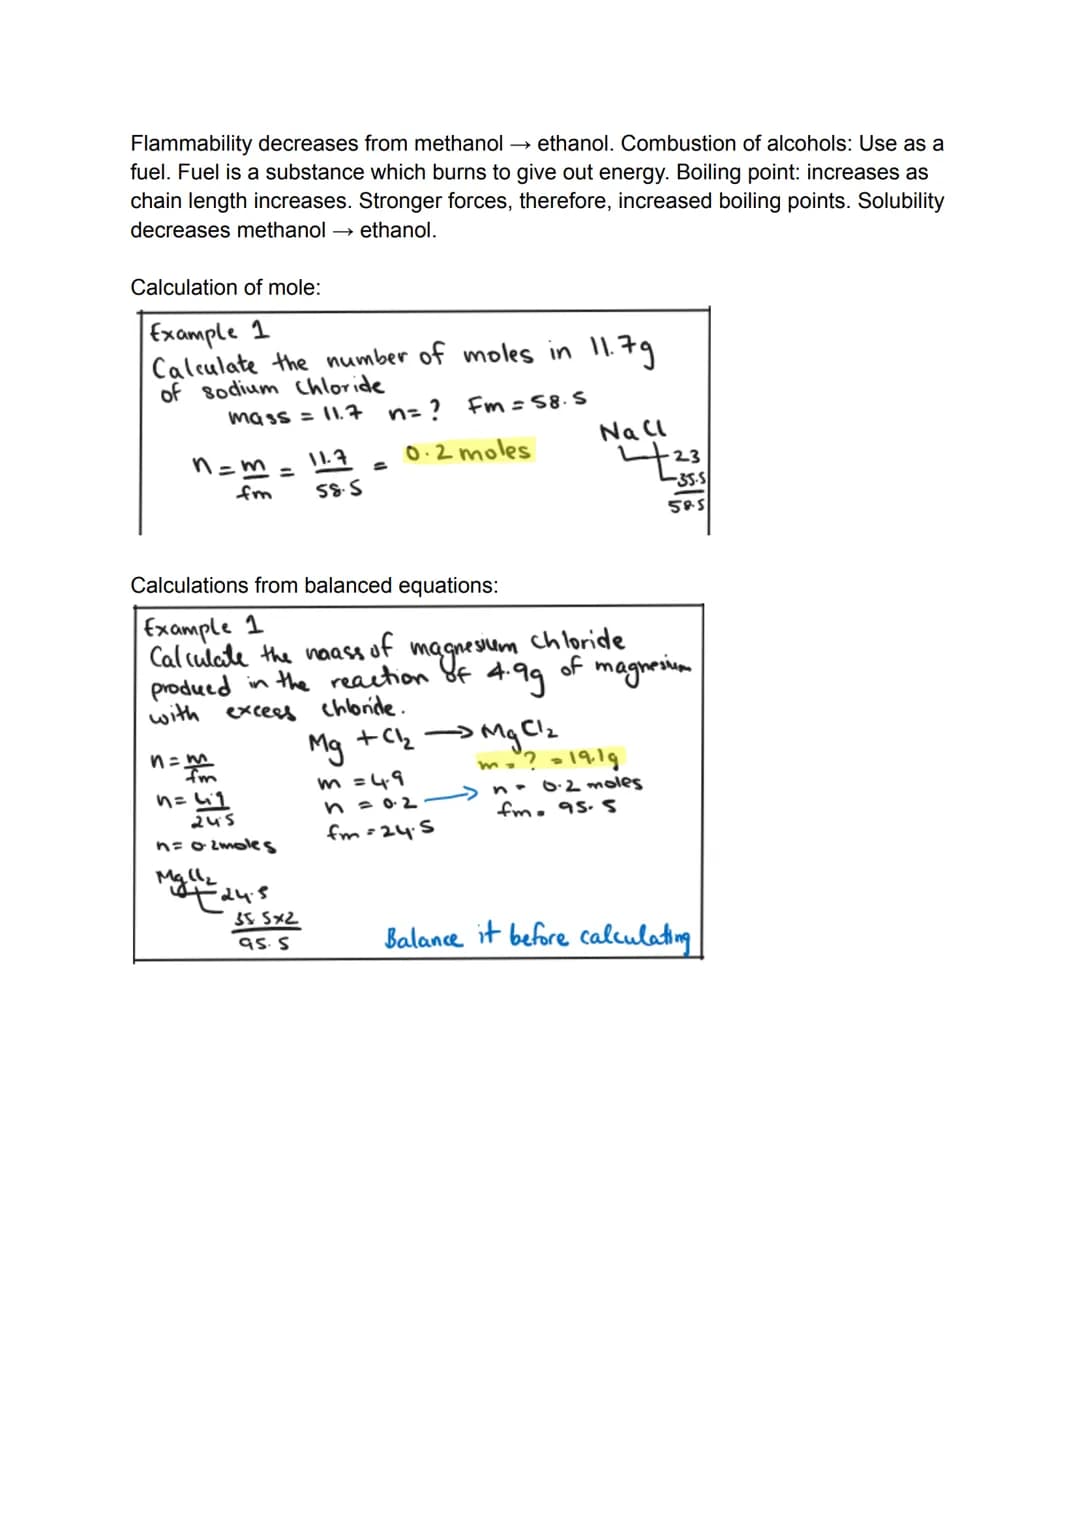 Flammability decreases from methanol → ethanol. Combustion of alcohols: Use as a
fuel. Fuel is a substance which burns to give out energy. Boiling point: increases as
chain length increases. Stronger forces, therefore, increased boiling points. Solubility
decreases methanol → ethanol.
Calculation of mole:
Example 1
Calculate the number of moles in 11.7g
of sodium Chloride
mass = 11.7 n= ? Fm = 58.5
n = m/fm = 11.7/58.5 = 0.2 moles
NaCl
23
35.5
58.5
Calculations from balanced equations:
Example 1
Calculate the mass of magnesium chloride
produed in the reaction of 4.9g of magnesium
with excess chloride.
Mg + Cl₂ → MgCl₂
n = m/fm
m = 4.9
m = ? = 19.1g
n = 4.9/24.5
n = 0.2 → n = 0.2 moles
fm = 24.5
fm = 95.5
n = 0.2moles
MgCl₂
24.5
35.5x2
95.5
Balance it before calculating